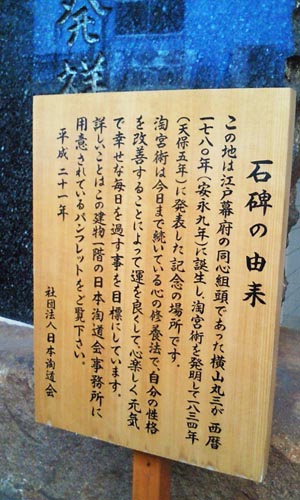 発祥
石碑の由来
この地は江戸幕府の同心組頭であった横山丸三が西暦
一七八〇年(安永九年)に誕生し、淘宮術を発明して一八三四年
(天保五年)に発表した記念の場所です。
淘宮術は今日まで続いている心の修養法で、自分の性格
を改善することによって運を良くして、心楽しく元気
で幸せな毎日を過す事を目標にしています。
詳しいことはこの建物一階の日本淘道会事務所に
用意されているパンフレットをご覧下さい。
平成二十一年
社団法人日本淘道会